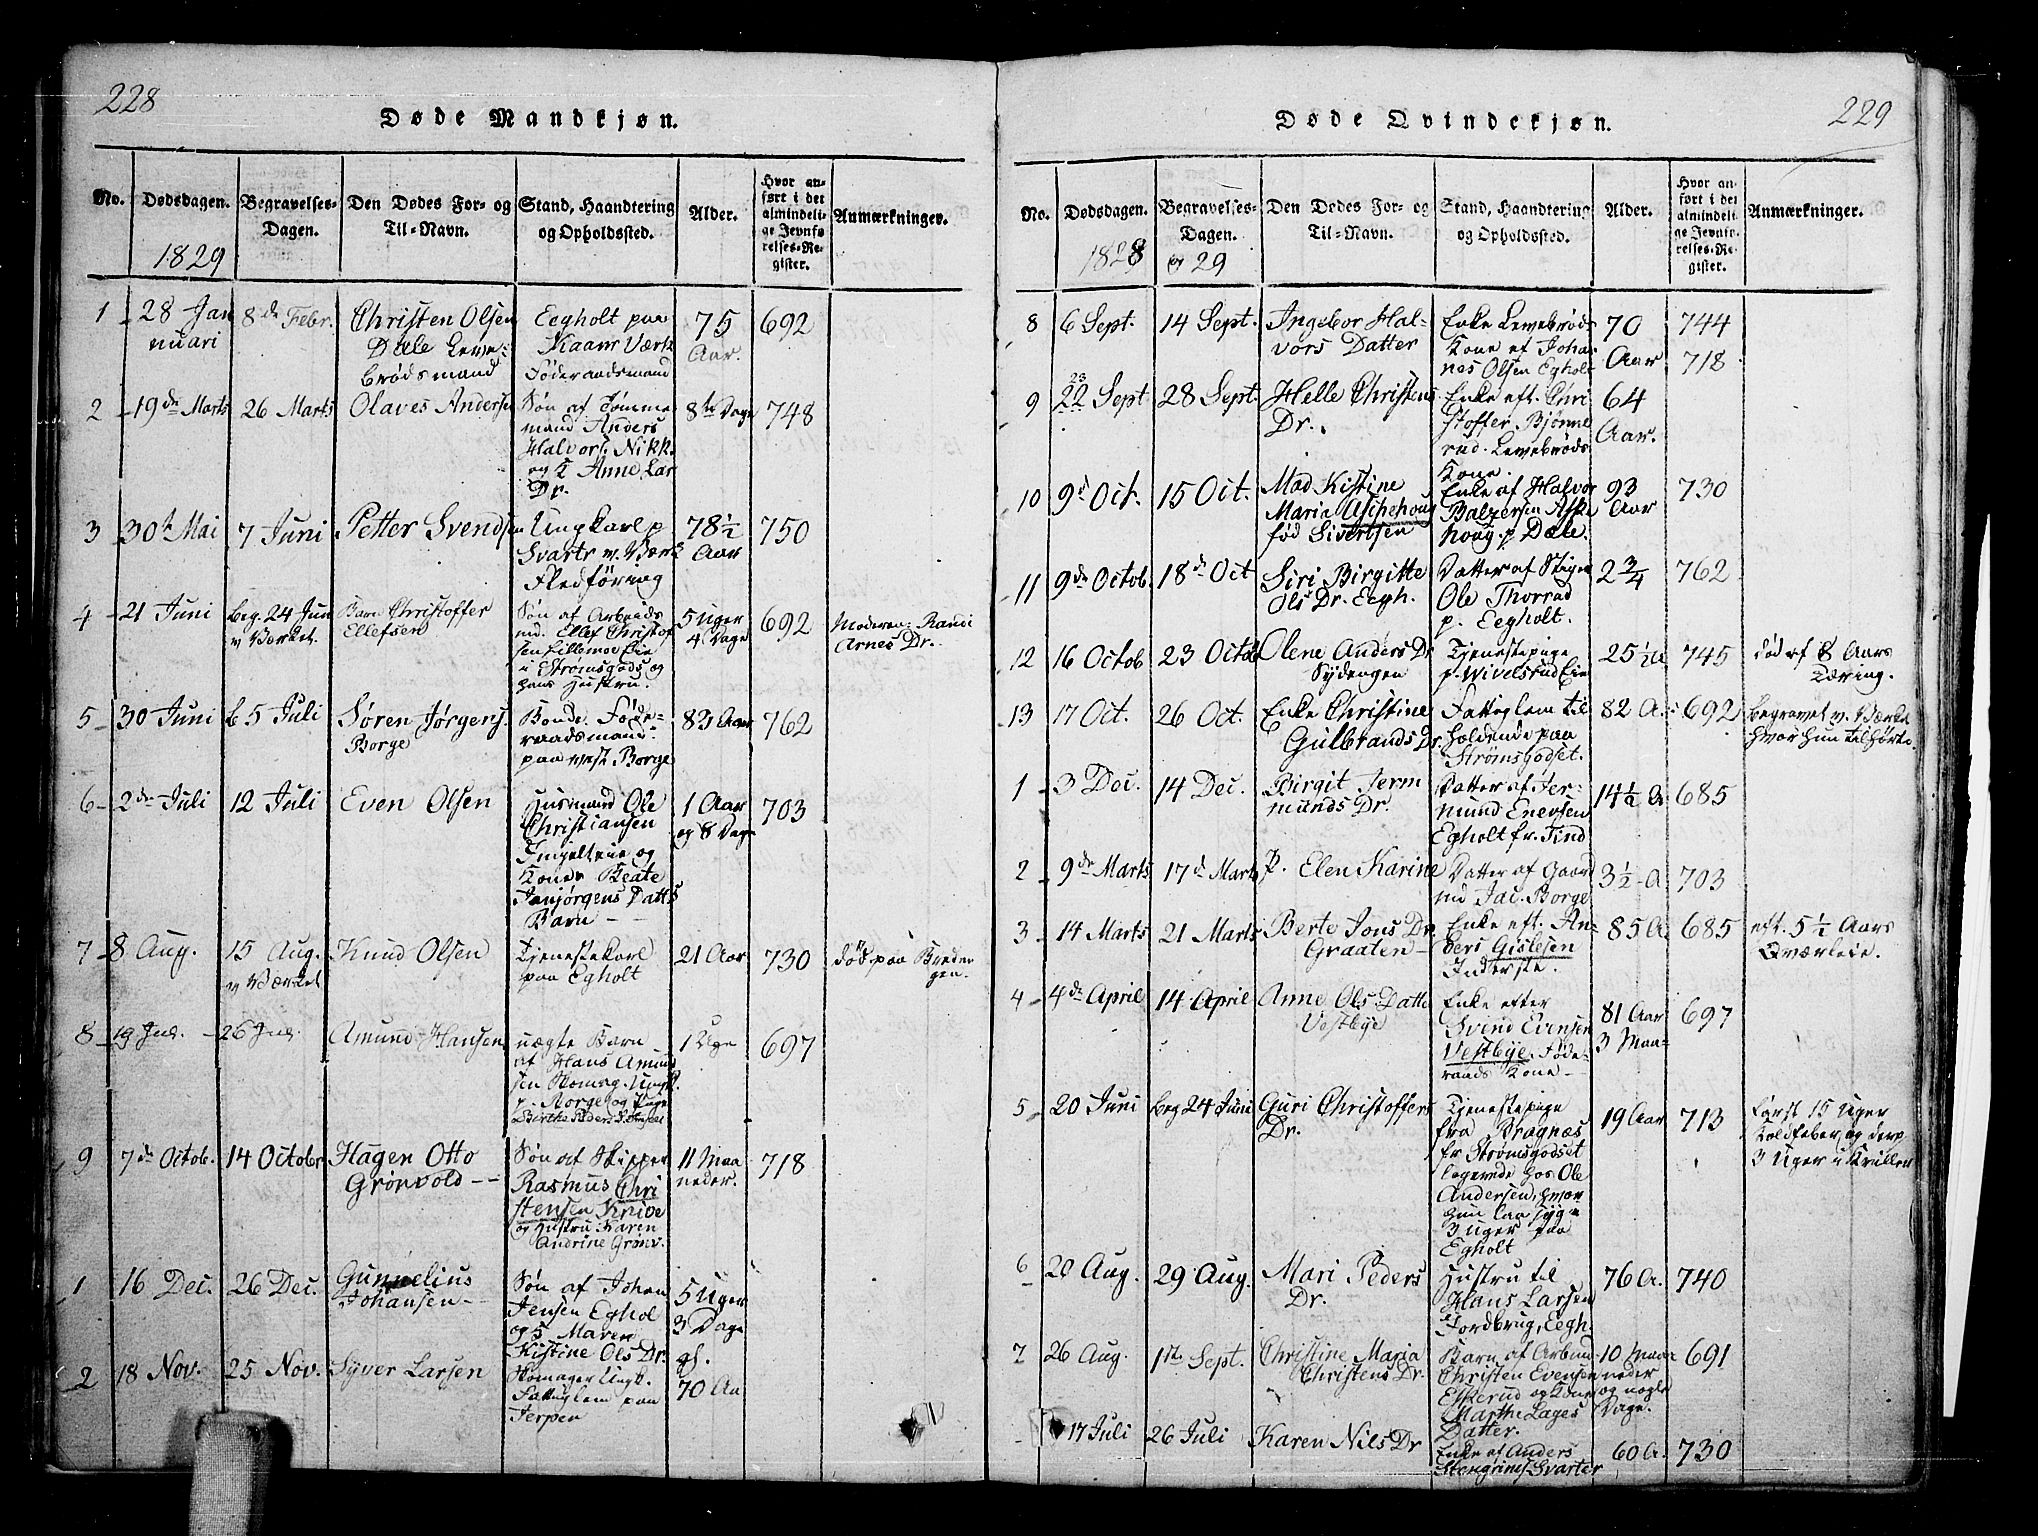 228
Døde Mandkjøn.
No.
Dødsdagen.
1829
Begravelses-
Dagen.
Den Dødes For- og
Til-Navn.
Stand, Haandtering
og Opholdssted.
Alder.
Hvor an-
ført i det
almindeli-
ge Jevnfø-
relses-Re-
gister.
Anmærkninger.
1 28 Jan
nuari
8de Febr.
Christen Olsen
Dæle Leve-
brødsmand
Eegholt paa
Kaanr Værk
Föderaadsmand
75
Aar.
692
2 19de Marts
26 Marts
Olaves Andersen
Søn af Tømme
mand Anders
Halvors. Nikk.
og K Anne Lar
Dr.
8te Dage
748
3 30te Mai
7 Juni
Petter Svendsen
Ungkarl p
Svartr v. Værk
Fledföring
78½
Aar
750
4 21 Juni
beg. 24 Jun
v Værket.
Barn Christoffer
Ellefsen
Søn af Arbeids
md. Ellef Christof
sen Lillemoe Eie
u Strømsgods og
hans Hustru.
5 Uger
4 Dage
692
Moderen: Randi
Arnes Dr.
5 30 Juni
b 5 Juli
Søren Jørgens.
Borge
Bonde. Föde-
raadsmand.
paa vest Borge
83 Aar
762
6 2de Juli
12 Juli
Even Olsen
Husmand Ole
Christiansen
og
Koner Beate
Janjørgens Datts
Barn
1 Aar
og 8 Dage
703
7 8 Aug.
15 Aug.
v Værket
Knud Olsen
Tjenestekarl
paa Egholt
21 Aar
730
död paa Breder
gen.
8 19 Jul.
26 Jul.
Amund Hansen
uægte Barn
af Hans Amund
sen Skomag. Ungk.
p. Norge og Pige
1 Uge
697
9 7de Octob.
14 Octobr
Hagen Otto
Grönvold
Søn af Skipper
Rasmus Chri
stensen Knive
og Hustru: Karen
Andrine Grønv.
11 Maa
neder.
718
1 16 Dec.
26 Dec.
Gunnelius
Johansen
Søn af Johan
Jensen Eghol
og H Maren
Kistine Ols Dr.
5 Uger
3 Dage
gl.
2 18 Nov.
25 Nov.
Syver Larsen
Skomager Ungk.
Fatteglem paa
Jerpen
70 Aa
229
Døde Qvindekjøn.
No.
Dødsdagen.
1828
Begravelses-
Dagen.
og 29
Den Dødes For- og
Til-Navn.
Stand, Haandtering
og Opholdssted.
Alder.
Hvor an-
ført i det
almindeli-
ge Jevnfø-
relses-Re-
gister.
Anmærkninger.
8 6 Sept.
14 Sept.
Ingebor Hal-
vors Datter
Enke Levebrøds
Kone ef Johan
nes Olsen Egholt
70
Aar
744
718
9 23
22 Sept
28 Sept.
Helle Christens
Dr.
Enke eft. Chri
stoffer Bjønne
rud. Levebrøds
Kone.
64
Aar.
10 9d Oct.
15 Oct.
Mad Kistine
Maria Aschehoug
fød Sivertsen
Enke af Halvor
Balzersen Aske
houg p Dæle.
93
Aar
730
11 9de Octob.
18de Oct
Siri Birgitte
Ols Dr. Eegh.
Datter af Stigen
Ole Thorrad
p. Eegholt.
2¾
762
12 16 Octob
23 Octob
Olene Anders Dr
Sydengen
Tjenestepige
p. Wivelsrud Eie
25½ A
745
død af 8 Aars
Tæring.
13 17 Oct.
26 Oct.
Enke Christine
Gulbrands Dr.
Fatteglem til
holdende paa
Strømsgodset.
82 A.
692
Begravet v. Værket
hvor hun tilhørte.
1 3 Dec.
14 Dec.
Birgit Jerm
munds Dr.
Datter af Jer-
mund Enersen
Egholt fr. Tind
14½ A
685
2 9de Marts
17d Marts
P. Elen Karine
Datter af Gaard
md Jac. Borge
3½ A
703
3 14 Marts
21 Marts
Berte Jons Dr.
Graaten
Enke eft. An-
ders Gislesen
Inderste.
85 A.
685
eft. 5½ Aars
Qværleie.
4 4de April
14 April
Anne Ols Datte
Vestbye
Enke efter
Svend Evensen
Vestbye. Føde-
raads Kone
81 Aar
3 Maa-
697
5 20 Juni
beg 24 Juni
Guri Christoffers
Dr.
Tjenestepige
fra Bragnæs
fr Strømsgodset
logerede hos Ole
Andersen, hvor
hun laa syg
3 Uger paa
Egholt
19 Aar
713
først 15 Uger
Koldfeber og derp
3 Uger
6 20 Aug.
29 Aug.
Mari Peders
Dr.
Hustru til
Hans Larsen
Jordbrug, Eegh.
76 A.
740
7 26 Aug.
1te Sept.
Christine Maria
Christens Dr.
Barn af Arbmd
Christen Evensen
Eskerud og Kone
Marthe Lages
Datter.
10 Maa
neder
og nogle
Dage.
691
17 Juli
26 Juli
Karen Nils Dr
Enke af Anders
Stengrims Svarter
60 A.
730